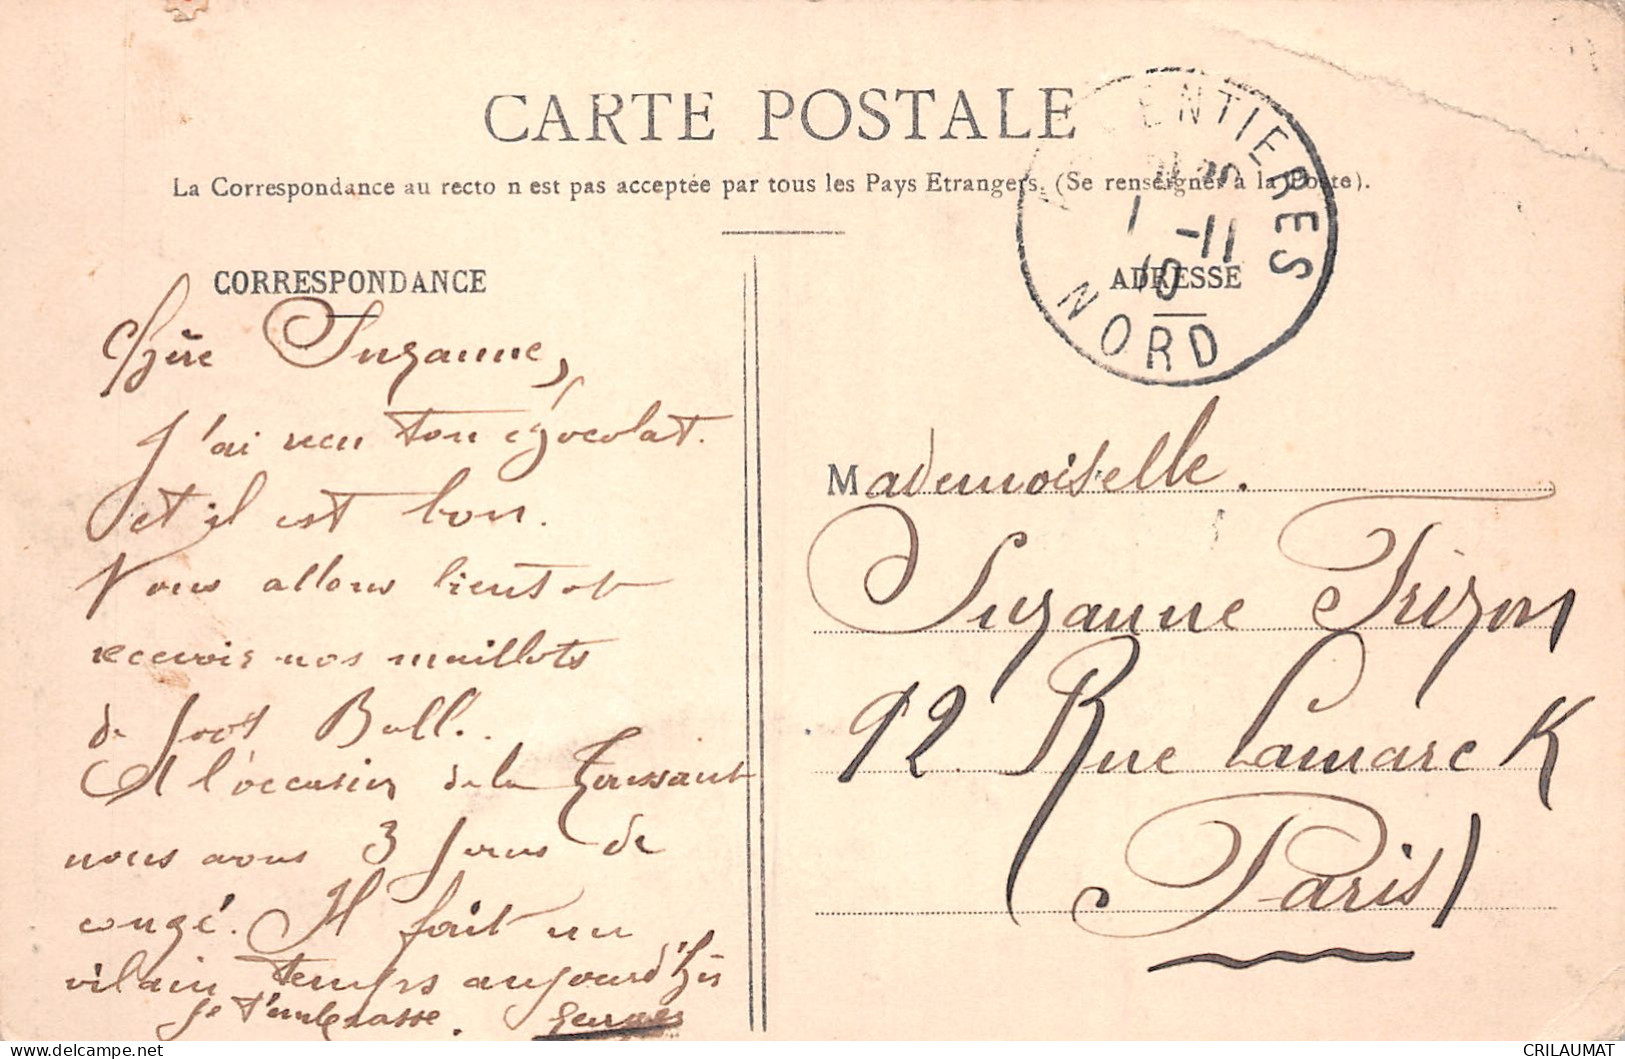 CARTE POSTALE
La Correspondance au recto n est pas acceptée par tous les Pays Etrangers. (Se renseigner à la Poste).
CORRESPONDANCE
Chère Suzanne,
J'ai reçu ton chocolat.
et il est bon.
Nous allons bientôt
recevoir nos maillots
de foot Ball.
A l'occasion de la Toussaint
nous avons 3 jours de
congé. Il fait un
vilain temps aujourd'hui
Je t'embrasse. Georges
ENTIERES
1 -11
10
NORD
ADRESSE
Mademoiselle.
Suzanne Frizon
92 Rue Lamarck
Paris
CRILAUMAT